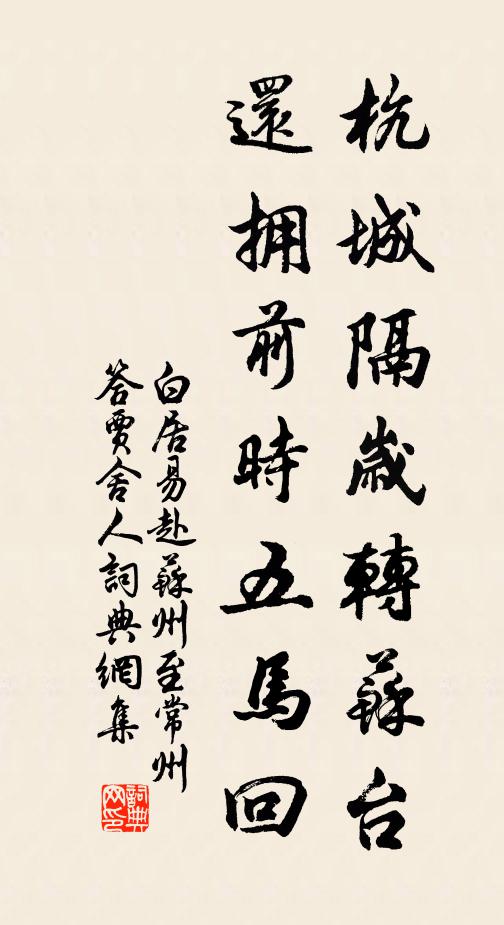 杭城隔歲轉蘇台
還擁前時五馬回
白居易赴蘇州至常州
答賈舍人詞典網集
詞典
网印